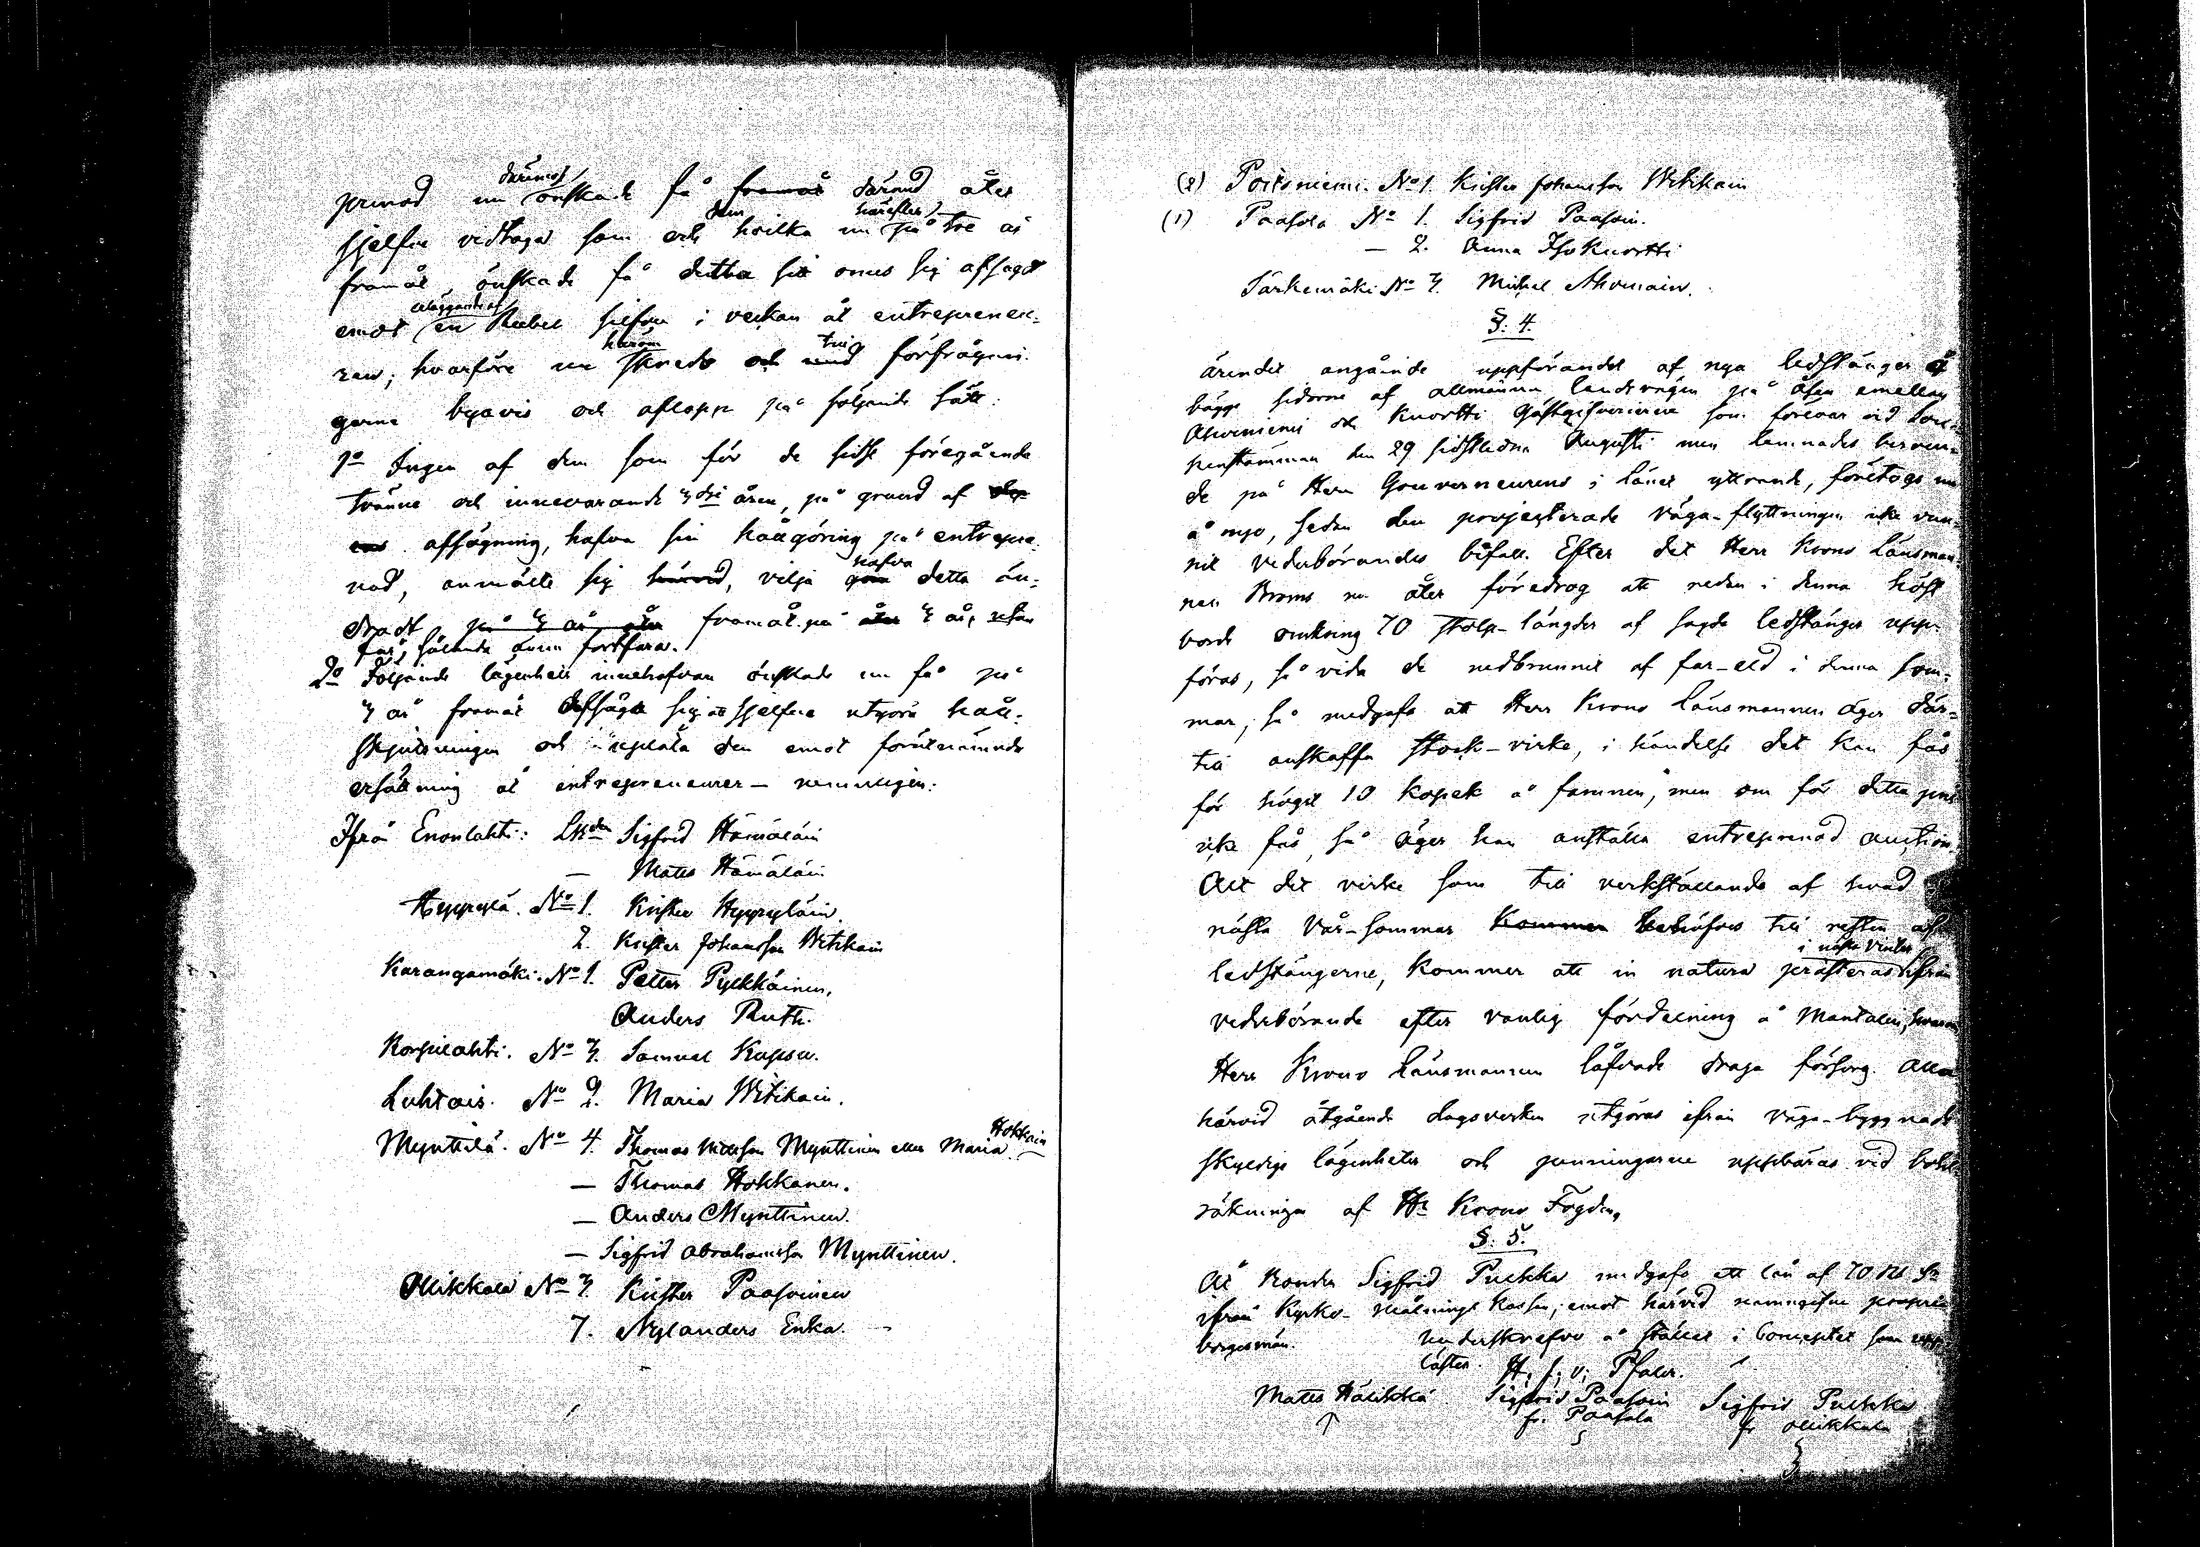 däremot
prenad nu önskade få framåt därmed åter
dem härefter
sjelfve vedtaga som och hvilka nu på tre år
framåt, önskade få detta sit onus sig afsagdt
erläggande af
emot en Rubel silfver i veckan åt entrepreneu-
härom trenne
ren; hvarföre nu skredo och med förfrågnin-
garne byavis och aflopp på följande sätt:
1o Ingen af dem som för de sidst föregående
tvänne och innevarande 3dje åren, på grund af
afsägning, hafva sin hållgöring på entrepre-
hafva
nad, anmälte sig härvid, vilja göra detta än-
dradt på 3 år åter framåt på åter 3 år, utan
får sålunda ännu fortfara.
2o Följande lägenhets innehafvare önskade nu få på
3 år framåt afsäga sig at sjelfve utgöra håll-
skjutsningen och upplåta den emot förutnämnde
ersättning åt entrepreneurer — nemligen:
Ifrå Enonlahti: Sigfrid Hämäläin
— Mats Hämäläin
Hyypylä. No 1. Krister Hyypyläin.
2. Krister Johansson Witikain
Karangamäki. No 1. Petter Pylkkäinen,
Anders Ruth.
Korpilahti. No 3. Samuel Kupsu.
Luhtais. No 2. Maria Witikain.
Hokkain
Mynttilä. No 4. Thomas Mynttinen eller Maria
— Thomas Hokkanen.
— Anders Mynttinen.
— Sigfrid Abrahamsson Mynttinen.
Ollikkala No 3. Krister Paasoinen
7. Nylanders Enka. —
(2) Poitsniemi. No 1. Krister Johansson Witikain
(1) Paasola No 1. Sigfrid Paasoin.
— 2. Anna IsoKuortti
Särkemäki No 3. Michel Ahvenain.
§. 4.
ärendet angående uppförandet af nya ledstänger å
bägge sidorne af allmänna landsvägen på åsen emellan
Ahveniemi och Kuortti Gästgifverierne som förevar vid Sock-
nenstämman den 29 sidstledne Augusti men lemnades beroen-
de på Herr Gouverneurens i länet yttrande, företogs nu
å nyo, sedan den projecterade väga-flyttningen icke vun-
nit vederbörandes bifall. Efter det Herr Krono Länsman-
nen Broms nu åter föredrog att redan i denna höst
borde omkring 70 stolp-längder af sagde ledstänger upp-
föras, så vida de nedbrunnit af far-eld i denna som-
mar; så medgafs att Herr Krono länsmannen äger där-
till anskaffa stock-virke, i händelse det kan fås
för högst 10 kopek å famnen, men om för detta pris
icke fås, så äger han anställa entreprenad auction.
Allt det virke som till verkställande af hvad
nästa vår-sommar kommer behöfves till resten af
i nästa vinter
ledstängerne, kommer att in natura præsteras ifrån
vederbörande efter vanlig fördelning å Mantalen, hvarom
Herr Krono Länsmannen låfvade draga försorg. Alla
härvid åtgående dagsverken utgöras ifrån väga-byggnads
skyldige lägenheter och penningarne uppbäras vid
räkningen af Hr Krono Fogden.
§. 5.
Åt Bonden Sigfrid Pulkka medgafs ett lån af 70 Rb Sr
ifrån Kyrko-målnings kassan, emot härvid namngifne
borgesmän. Underskrefvo å stället i Conceptet som upp-
lästes. H. J. v. Pfaler.
Mats Häkkä Sigfrid Paasoin Sigfrid Pulkka
fr. Paasola fr Ollikkala